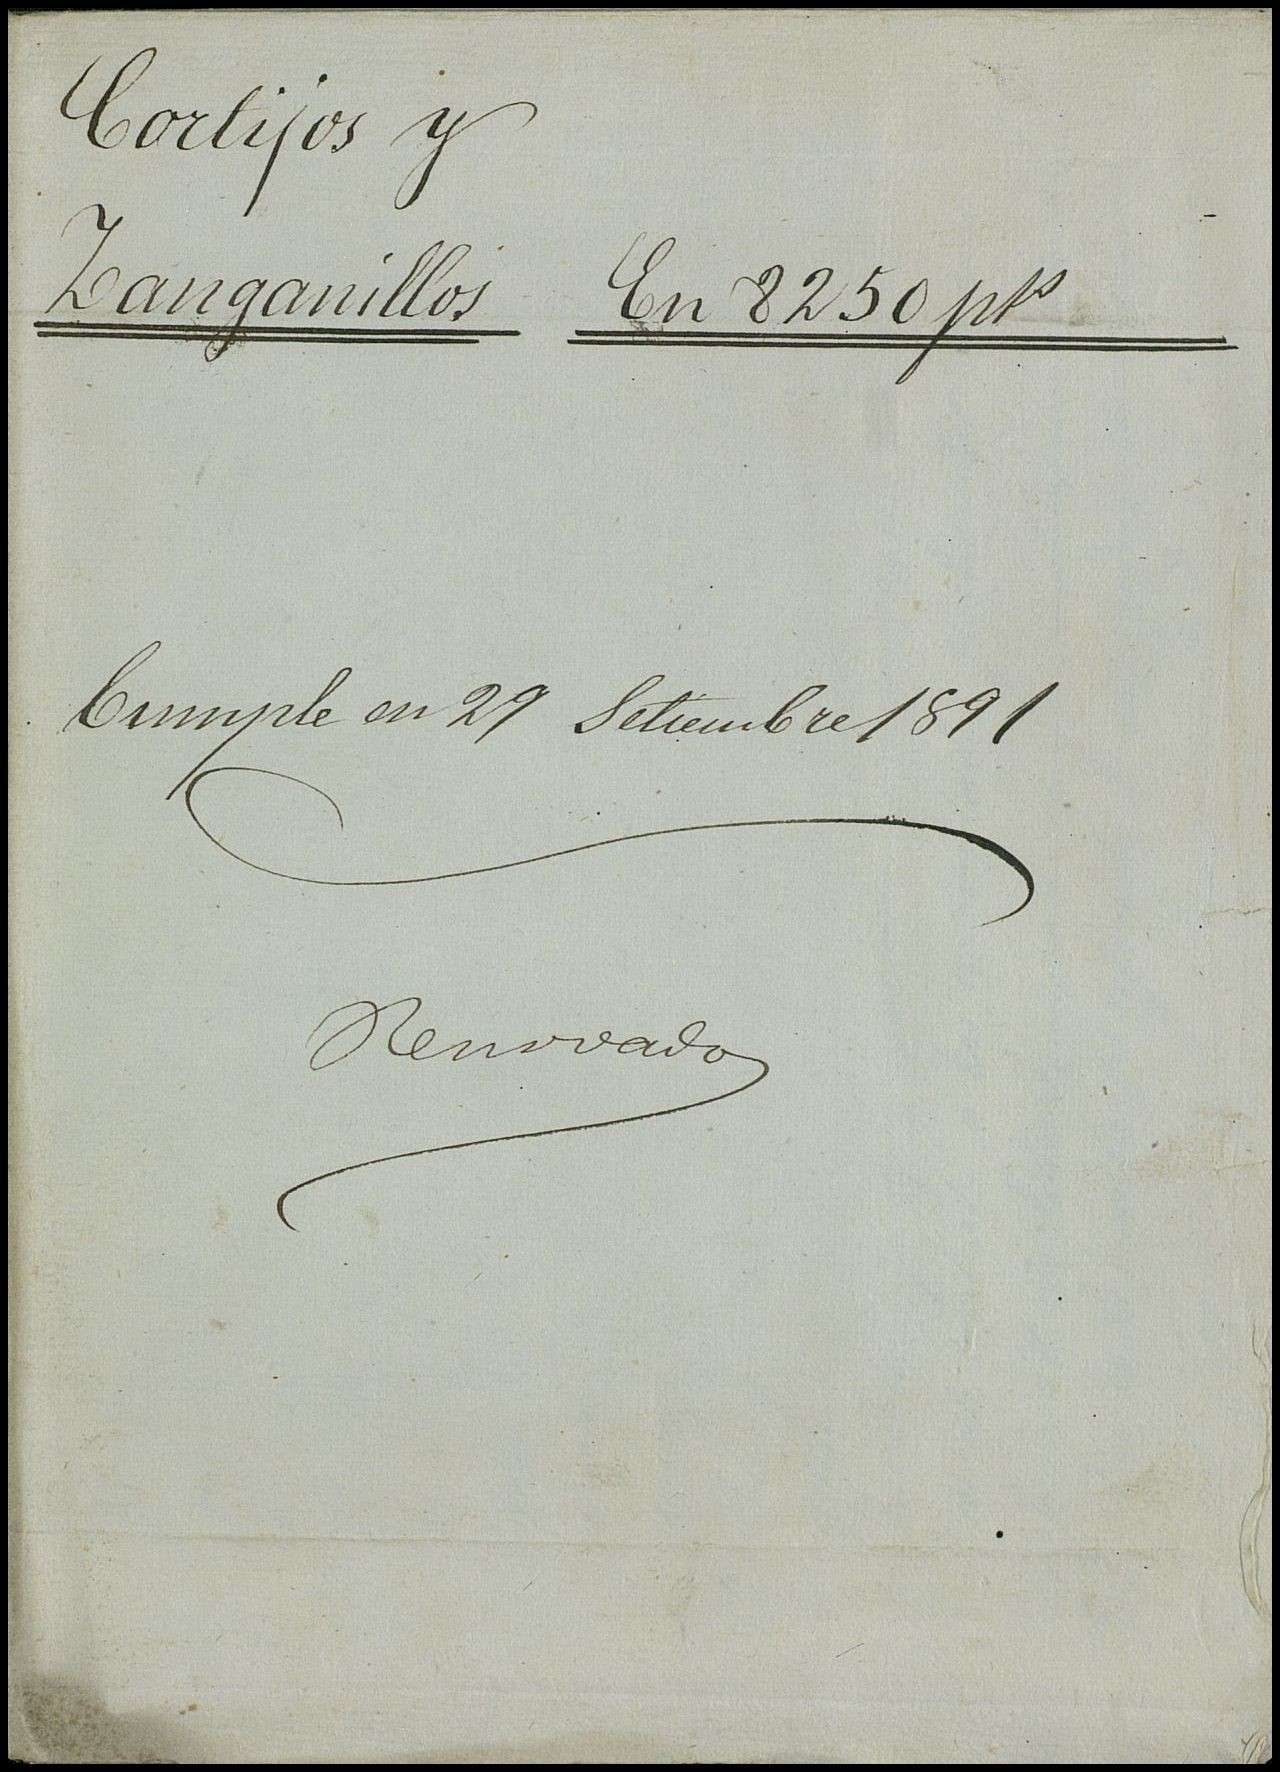 Cortijos y
Zanganillos En 8250 pts
Cumple en 29 Setiembre 1891
Renovado